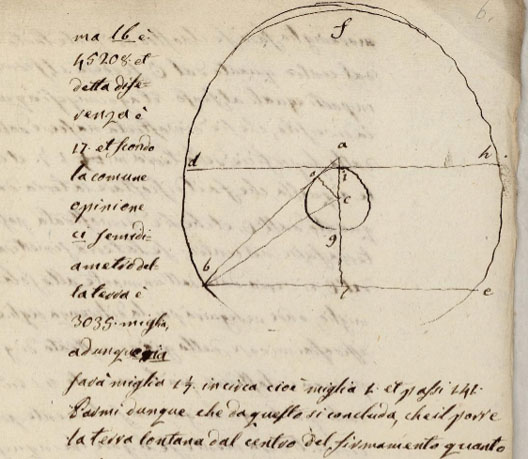 6.
f
ma 16 è
45208. et
detta dife-
renza è
17. et secondo
la comune
opinione
ci semidi-
ametro del-
la terra è
3035. miglia,
adunque
sarà miglia 17. in circa cioè miglia 1. et passi 141.
Parmi dunque che da questo si concluda, che il porre
la terra lontana dal centro del firmamento quanto
a
d
h
i
c
g
b
e